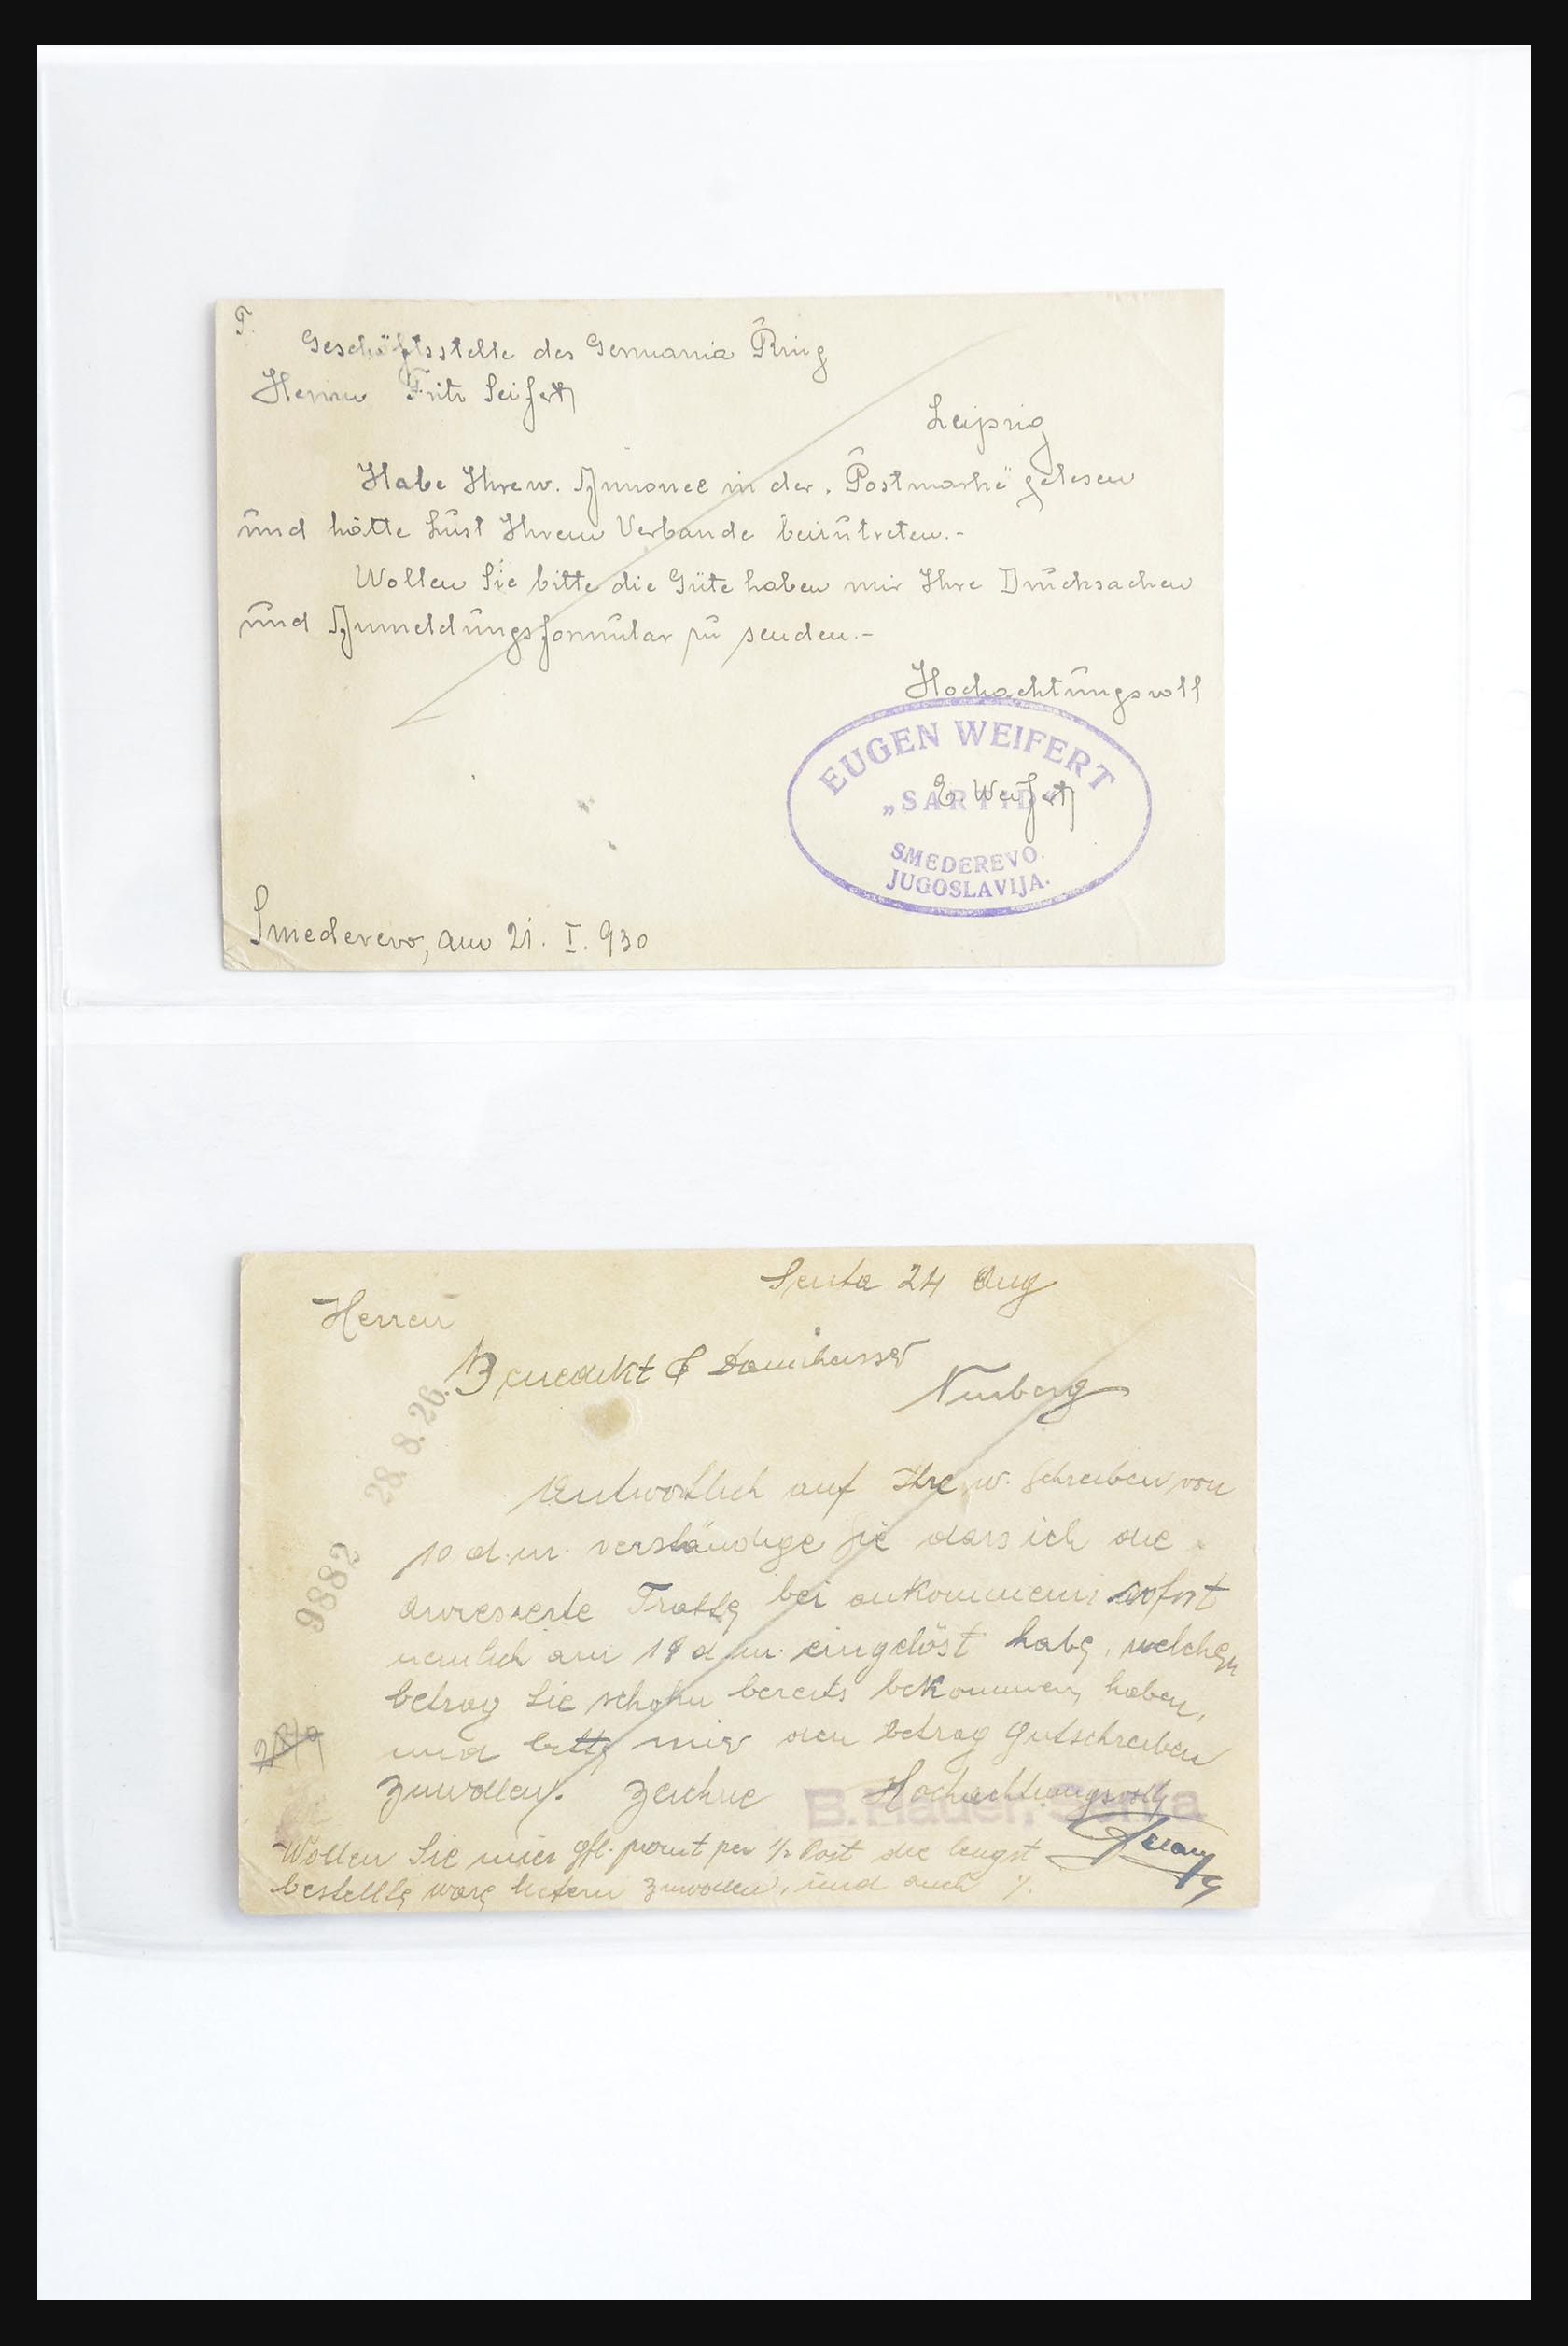 T.
Geschäftsstelle des Germania Ring
Herrn Fritz Seifert
Leipzig
Habe Ihre w. Annonce in der „Postmarke" gelesen
und hätte Lust Ihrem Verbande beizutreten.-
Wollen Sie bitte die Güte haben mir Ihre Drucksachen
und Anmeldungsformular zu senden.-
Hochachtungsvoll
EUGEN WEIFERT
„SARTID"
E. Weifert
SMEDEREVO.
JUGOSLAVIJA.
Smederevo, am 21. I. 930
Senta 24 Aug
Herren
Benedikt & Dannhauser
Nurberg
28. 8. 26.
Antwortlich auf Ihre w. Schreiben von
10 d.m. verständige Sie dass ich die
9882
avisierte Tratte bei ankommen sofort
nemlich am 18 d m. eingelöst habe, welchen
betrag Sie schohn bereits bekommen haben,
und bitte mir den betrag gutschreiben
zuwollen. Zeichne Hochachtungsvoll
B. Hauer, Senta
Wollen Sie mier gfl. promt per Post die lengst
bestellte ware liefern zuwollen, und auch